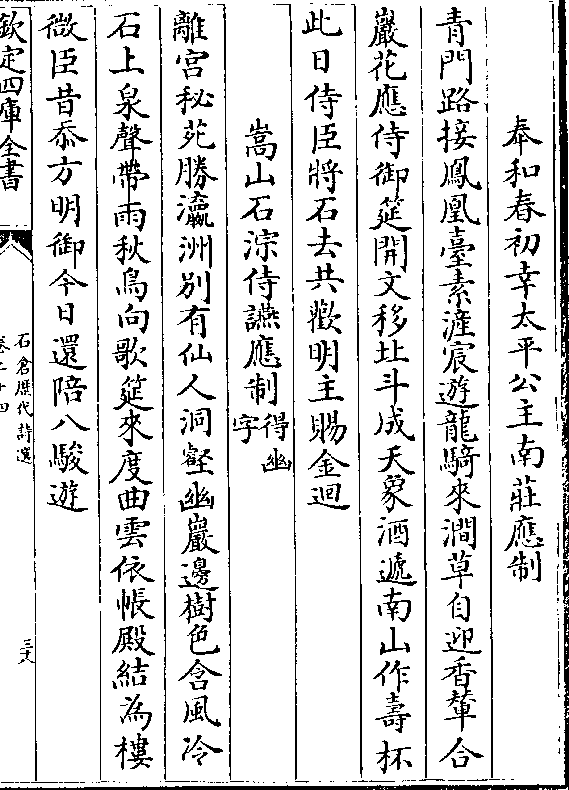 奉和春初幸太平公主南莊應制
青門路接鳳凰臺素滻宸遊龍騎來澗草自迎香輦合
巖花應侍御筵開文移北斗成天象酒遞南山作壽杯
此日侍臣將石去共歡明主賜金迴
嵩山石淙侍讌應制得幽字
離宮秘苑勝瀛洲別有仙人洞壑幽巖邊樹色含風冷
石上泉聲帶雨秋鳥向歌筵來度曲雲依帳殿結為樓
微臣昔忝方明御今日還陪八駿遊
欽定四庫全書
石倉歷代詩選
卷二十四
三十八